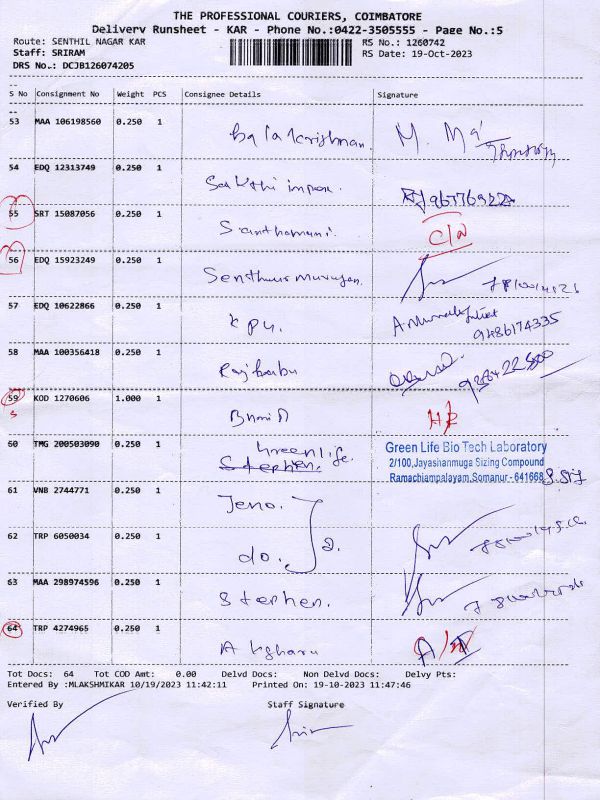 THE PROFESSIONAL COURIERS, COIMBATORE
Delivery Runsheet - KAR - Phone No.:0422-3505555 - Page No.:5
Route: SENTHIL NAGAR KAR
RS No.: 1260742
Staff: SRIRAM
RS Date: 19-Oct-2023
DRS No.: DCJB126074205
S No Consignment No Weight PCS Consignee Details Signature
53 MAA 106198560 0.250 1 Balakrishnan.
54 EDQ 12313749 0.250 1
55 SRT 15087056 0.250 1 Santhamani.
56 EDQ 15923249 0.250 1 Senthurmurugan.
57 EDQ 10622866 0.250 1 KPU.
9486174335
58 MAA 100356418 0.250 1 Rajbabu
59 KOD 1270606 1.000 1
S
60 TMG 200503090 0.250 1 Greenlife.
Stephen.
Green Life Bio Tech Laboratory
2/100,Jayashanmuga Sizing Compound
Ramachiampalayam,Somanur - 641668
61 VNB 2744771 0.250 1 Jeno.
62 TRP 6050034 0.250 1 do.
63 MAA 298974596 0.250 1 Stephen.
64 TRP 4274965 0.250 1
Tot Docs: 64 Tot COD Amt: 0.00 Delvd Docs: Non Delvd Docs: Delvy Pts:
Entered By :MLAKSHMIKAR 10/19/2023 11:42:11 Printed On: 19-10-2023 11:47:46
Verified By Staff Signature